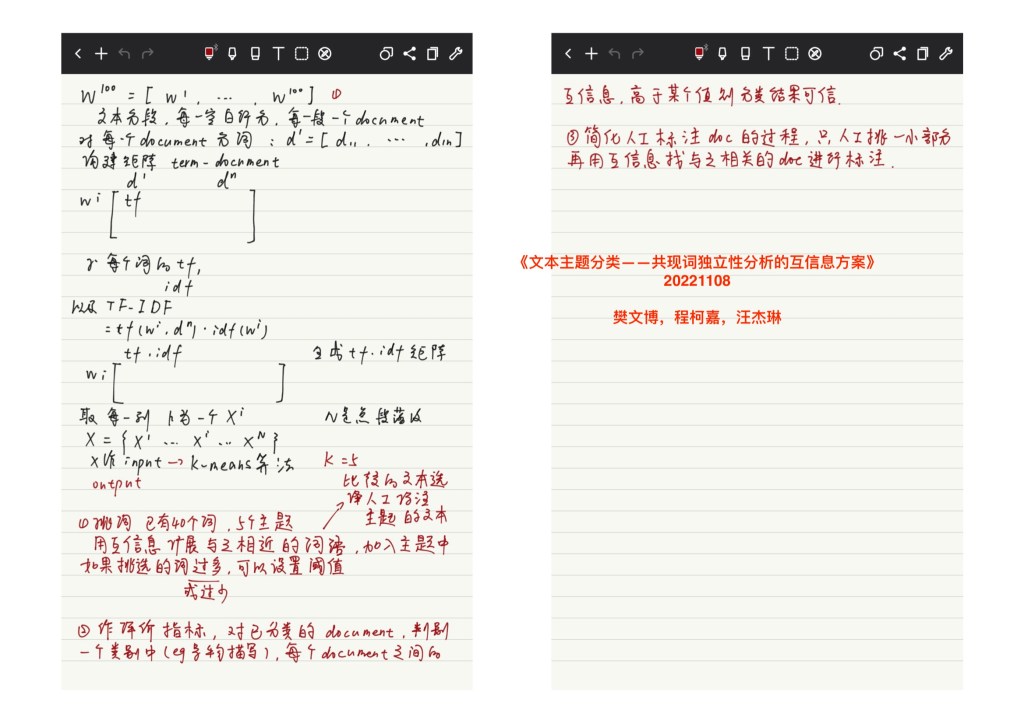 W¹⁰⁰ = [ w¹, ... , w¹⁰⁰ ] ①
文本分段，每一空白行分，每一段一个document
对每个document分词：d¹ = [ d₁₁, ... , d₁ₙ ]
构建矩阵 term-document
d¹ dⁿ
wi [ tf ]
每个词的 tf,
idf
以及 TF-IDF
= tf(wⁱ, dⁿ) · idf(wⁱ)
tf · idf 生成 tf·idf 矩阵
wi [ ]
取每一列 作为一个 Xⁱ N是总段落数
X = { X¹ ... Xⁱ ... Xᴺ }
X作 input → k-means算法 K=5
output
比较的文本选
择人工标注
主题的文本
①挑词 已有40个词，5个主题
用互信息扩展与之相近的词语，加入主题中
如果挑选的词过多，可以设置阈值
或过少
② 作评价指标，对已分类的 document，判别
一个类别中(eg 的描写)，每个document之间的
互信息，高于某个值则分类结果可信.
③ 简化人工标注 doc 的过程，只人工挑一小部分
再用互信息找与之相关的doc进行标注.
《文本主题分类——共现词独立性分析的互信息方案》
20221108
樊文博，程柯嘉，汪杰琳